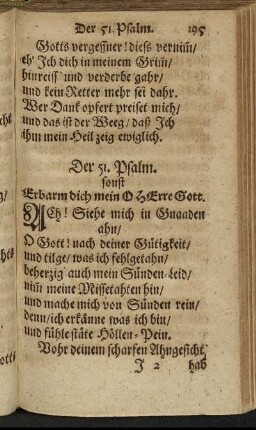 Der 51. Psalm. 195
Gotts vergessner! diess vernim̄/
eh' Jch dich in meinem Grim̄/
hinreiss' und verderbe gahr/
und kein Retter mehr sei dahr.
Wer Dank opfert preiset mich/
und das ist der Weeg/ dass Jch
ihm mein Heil zeig ewiglich.
Der 51. Psalm.
sonst
Erbarm dich mein O HErre Gott.
ACh! Siehe mich in Gnaaden
ahn/
O Gott! nach deiner Gütigkeit/
und tilge/ was ich fehlgetahn/
beherzig auch mein Sünden-Leid/
nim̄ meine Missetahten hin/
und mache mich von Sünden rein/
denn/ ich erkänne was ich bin/
und fühle stäte Höllen-Pein.
Vohr deinem scharfen Ahngesicht
J 2 hab